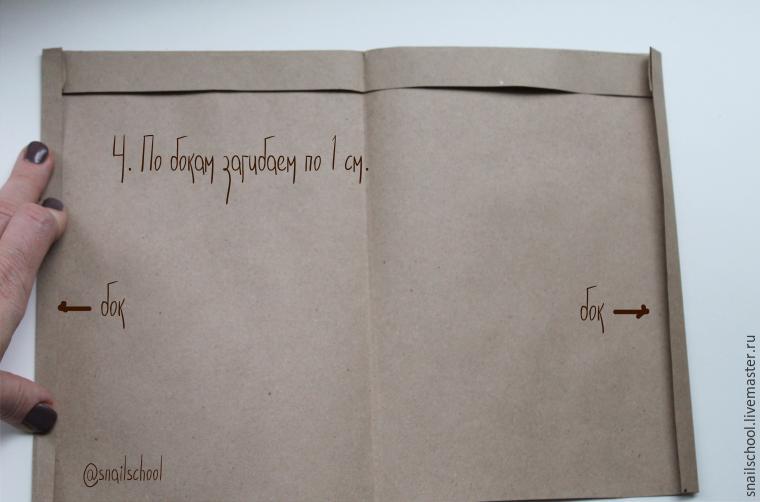 4. По бокам загибаем по 1 см.
← бок
бок →
@snailschool
snailschool.livemaster.ru